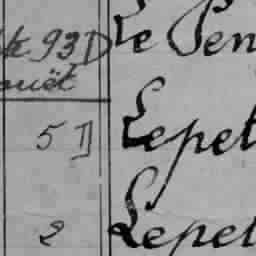 93 D Le Pen
ouët
5 D Lepet
2 Lepet